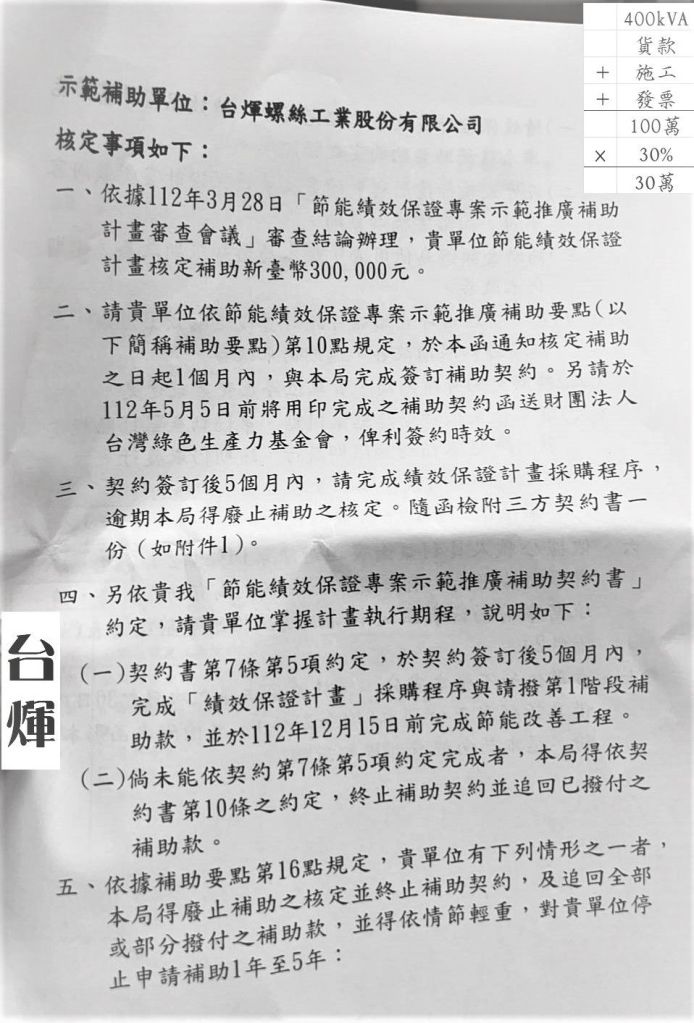 400kVA
貨款
+ 施工
+ 發票
100萬
× 30%
30萬
示範補助單位：台煇螺絲工業股份有限公司
核定事項如下：
一、依據112年3月28日「節能績效保證專案示範推廣補助
計畫審查會議」審查結論辦理，貴單位節能績效保證
計畫核定補助新臺幣300,000元。
二、請貴單位依節能績效保證專案示範推廣補助要點(以
下簡稱補助要點)第10點規定，於本函通知核定補助
之日起1個月內，與本局完成簽訂補助契約。另請於
112年5月5日前將用印完成之補助契約函送財團法人
台灣綠色生產力基金會，俾利簽約時效。
三、契約簽訂後5個月內，請完成績效保證計畫採購程序，
逾期本局得廢止補助之核定。隨函檢附三方契約書一
份（如附件1)。
四、另依貴我「節能績效保證專案示範推廣補助契約書」
約定，請貴單位掌握計畫執行期程，說明如下：
(一)契約書第7條第5項約定，於契約簽訂後5個月內，
完成「績效保證計畫」採購程序與請撥第1階段補
助款，並於112年12月15日前完成節能改善工程。
(二)倘未能依契約第7條第5項約定完成者，本局得依契
約書第10條之約定，終止補助契約並追回已撥付之
補助款。
五、依據補助要點第16點規定，貴單位有下列情形之一者，
本局得廢止補助之核定並終止補助契約，及追回全部
或部分撥付之補助款，並得依情節輕重，對貴單位停
止申請補助1年至5年：
台煇